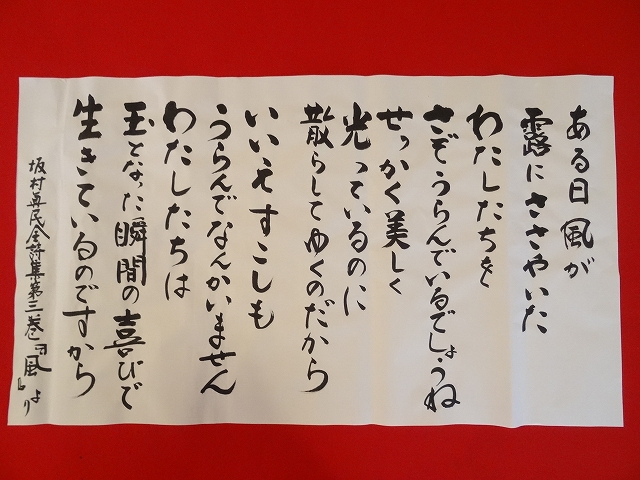 ある日風が
露にささやいた
わたしたちを
さぞうらんでいるでしょうね
せっかく美しく
光っているのに
散らしてゆくのだから
いいえすこしも
うらんでなんかいません
わたしたちは
玉となった瞬間の喜びで
生きているのですから
坂村真民全詩集第三巻『風』より